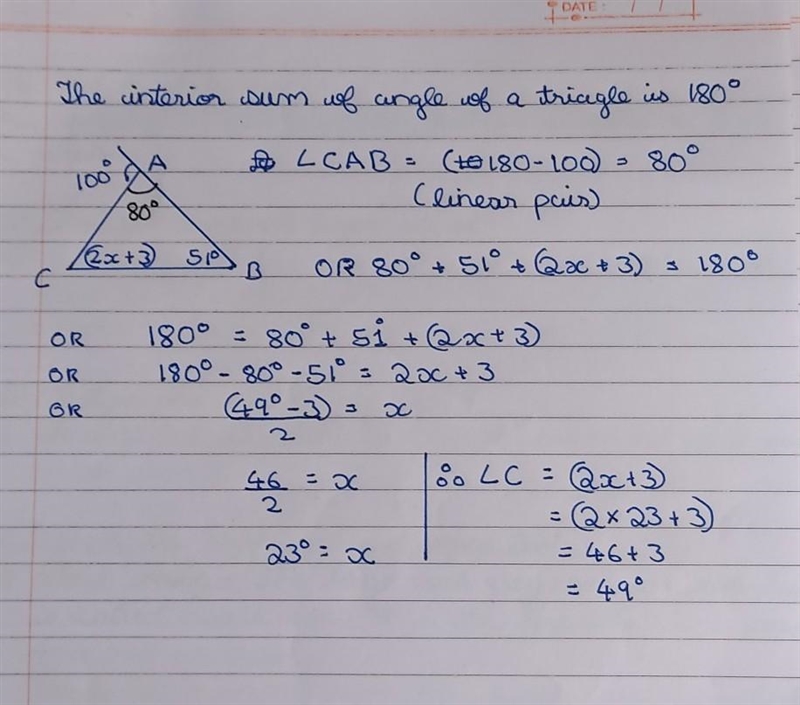 DATE: / /
The interior sum of angle of a triagle is 180°
100° A
80°
C (2x+3) 51° B
∠CAB = (180-100) = 80°
(linear pair)
OR 80° + 51° + (2x + 3) = 180°
OR 180° = 80° + 51° + (2x + 3)
OR 180° - 80° - 51° = 2x + 3
OR (49° - 3)/2 = x
46/2 = x
23° = x
∴ ∠C = (2x+3)
= (2 × 23 + 3)
= 46 + 3
= 49°